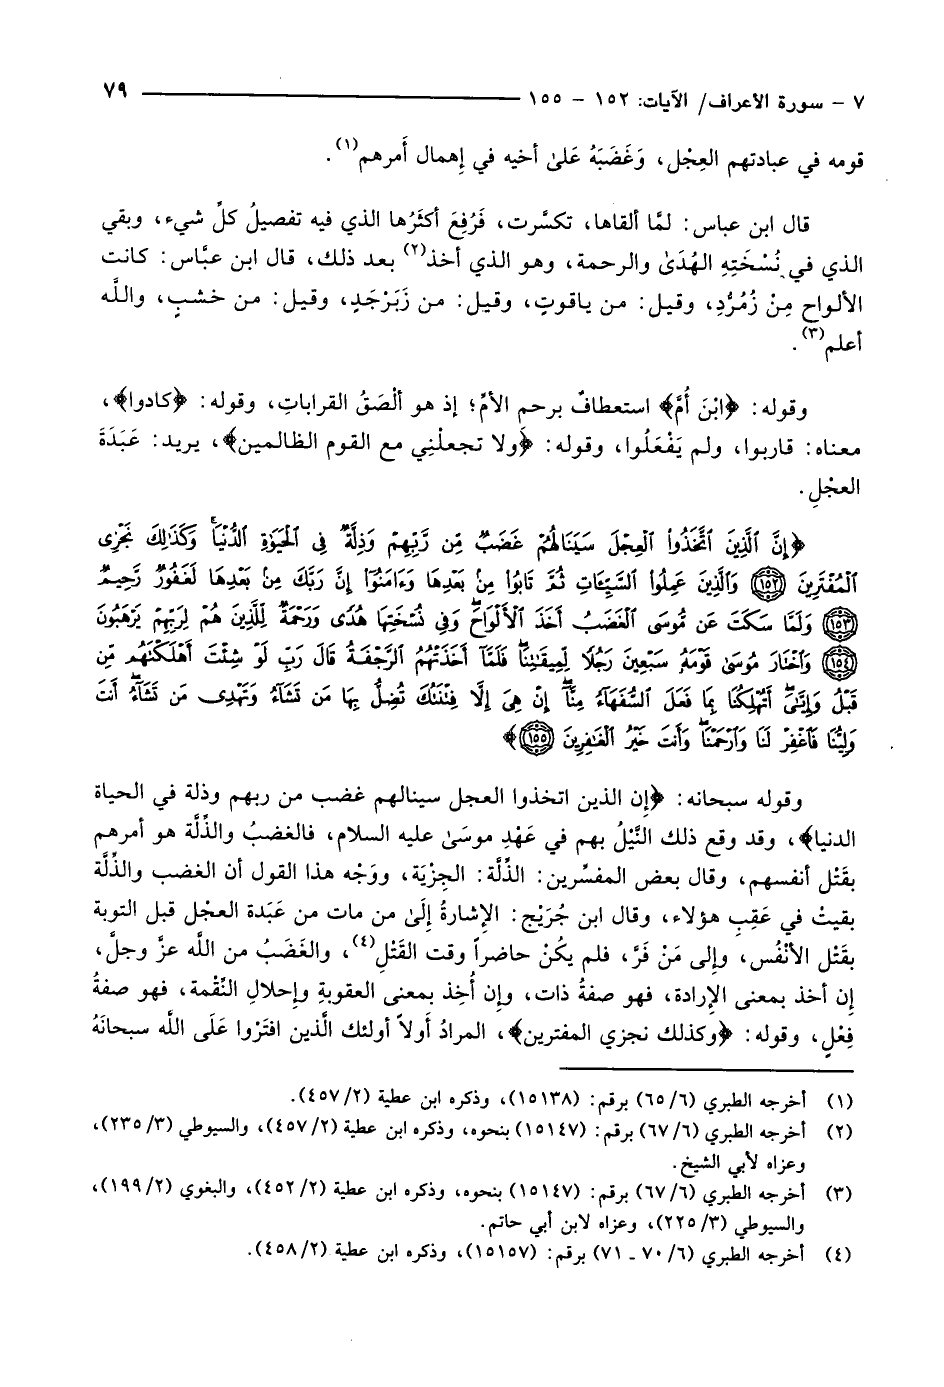 ٧ - سورة الأعراف/ الآيات: ١٥٢ - ١٥٥ ٧٩
قومه في عبادتهم العِجْل، وَغَضَبَهُ عَلَىٰ أخيه في إِهمال أَمرهم(١).
قال ابن عباس: لمَّا ألقاها، تكسَّرت، فَرُفِعَ أكثَرُها الذي فيه تفصيلُ كلِّ شيء، وبقي
الذي في نُسْخَتِهِ الهُدَىٰ والرحمة، وهو الذي أخذ(٢) بعد ذلك، قال ابن عبَّاس: كانت
الألواح مِنْ زُمُرُّدِ، وقيل: من ياقوتٍ، وقيل: من زَبَرْجَدٍ، وقيل: من خشبٍ، واللَّه
أعلم(٣).
وقوله: ﴿ابْنَ أُمَّ﴾ استعطافٌ برحم الأمِّ؛ إذ هو ألْصَقُ القراباتِ، وقوله: ﴿كادوا﴾،
معناه: قاربوا، ولم يَفْعَلُوا، وقوله: ﴿ولا تجعلْنِي مع القوم الظالمين﴾، يريد: عَبَدَةَ
العجْلِ.
﴿إِنَّ ٱلَّذِينَ ٱتَّخَذُوا۟ ٱلْعِجْلَ سَيَنَالُهُمْ غَضَبٌ مِّن رَّبِّهِمْ وَذِلَّةٌ فِى ٱلْحَيَوٰةِ ٱلدُّنْيَا ۚ وَكَذَٰلِكَ نَجْزِى
ٱلْمُفْتَرِينَ ١٥٢ وَٱلَّذِينَ عَمِلُوا۟ ٱلسَّيِّـَٔاتِ ثُمَّ تَابُوا۟ مِنۢ بَعْدِهَا وَءَامَنُوٓا۟ إِنَّ رَبَّكَ مِنۢ بَعْدِهَا لَغَفُورٌ رَّحِيمٌ
١٥٣ وَلَمَّا سَكَتَ عَن مُّوسَى ٱلْغَضَبُ أَخَذَ ٱلْأَلْوَاحَ ۖ وَفِى نُسْخَتِهَا هُدًى وَرَحْمَةٌ لِّلَّذِينَ هُمْ لِرَبِّهِمْ يَرْهَبُونَ
١٥٤ وَٱخْتَارَ مُوسَىٰ قَوْمَهُۥ سَبْعِينَ رَجُلًا لِّمِيقَـٰتِنَا ۖ فَلَمَّآ أَخَذَتْهُمُ ٱلرَّجْفَةُ قَالَ رَبِّ لَوْ شِئْتَ أَهْلَكْتَهُم مِّن
قَبْلُ وَإِيَّـٰىَ ۖ أَتُهْلِكُنَا بِمَا فَعَلَ ٱلسُّفَهَآءُ مِنَّآ ۖ إِنْ هِىَ إِلَّا فِتْنَتُكَ تُضِلُّ بِهَا مَن تَشَآءُ وَتَهْدِى مَن تَشَآءُ ۖ أَنتَ
وَلِيُّنَا فَٱغْفِرْ لَنَا وَٱرْحَمْنَا ۖ وَأَنتَ خَيْرُ ٱلْغَـٰفِرِينَ ١٥٥﴾
وقوله سبحانه: ﴿إن الذين اتخذوا العجل سينالهم غضب من ربهم وذلة في الحياة
الدنيا﴾، وقد وقع ذلك النَّيْلُ بهم في عَهْدِ موسَىٰ عليه السلام، فالغضبُ والذِّلَّة هو أمرهم
بقَتْل أنفسهم، وقال بعض المفسِّرين: الذِّلَّة: الجِزْيَة، ووَجْه هذا القول أن الغضب والذِّلَّة
بقيتْ في عَقِبِ هؤلاء، وقال ابن جُرَيْج: الإِشارةُ إِلَىٰ من مات من عَبَدة العجْل قبل التوبة
بقَتْل الأنْفُس، وإلى مَنْ فَرَّ، فلم يكُنْ حاضراً وقت القَتْلِ(٤)، والغَضَبُ من اللَّه عزَّ وجلَّ،
إن أخذ بمعنى الإِرادة، فهو صفةُ ذات، وإن أُخِذ بمعنى العقوبةِ وإحلالِ النِّقْمة، فهو صفةُ
فِعْلٍ، وقوله: ﴿وكذلك نجزي المفترين﴾، المرادُ أَولاً أولئك الَّذين افتَرْوا عَلَى اللَّه سبحانَهُ
(١) أخرجه الطبري (٦/ ٦٥) برقم: (١٥١٣٨)، وذكره ابن عطية (٢/ ٤٥٧).
(٢) أخرجه الطبري (٦/ ٦٧) برقم: (١٥١٤٧) بنحوه، وذكره ابن عطية (٢/ ٤٥٧)، والسيوطي (٣/ ٢٣٥)،
وعزاه لأبي الشيخ.
(٣) أخرجه الطبري (٦/ ٦٧) برقم: (١٥١٤٧) بنحوه، وذكره ابن عطية (٢/ ٤٥٢)، والبغوي (٢/ ١٩٩)،
والسيوطي (٣/ ٢٢٥)، وعزاه لابن أبي حاتم.
(٤) أخرجه الطبري (٦/ ٧٠ - ٧١) برقم: (١٥١٥٧)، وذكره ابن عطية (٢/ ٤٥٨).